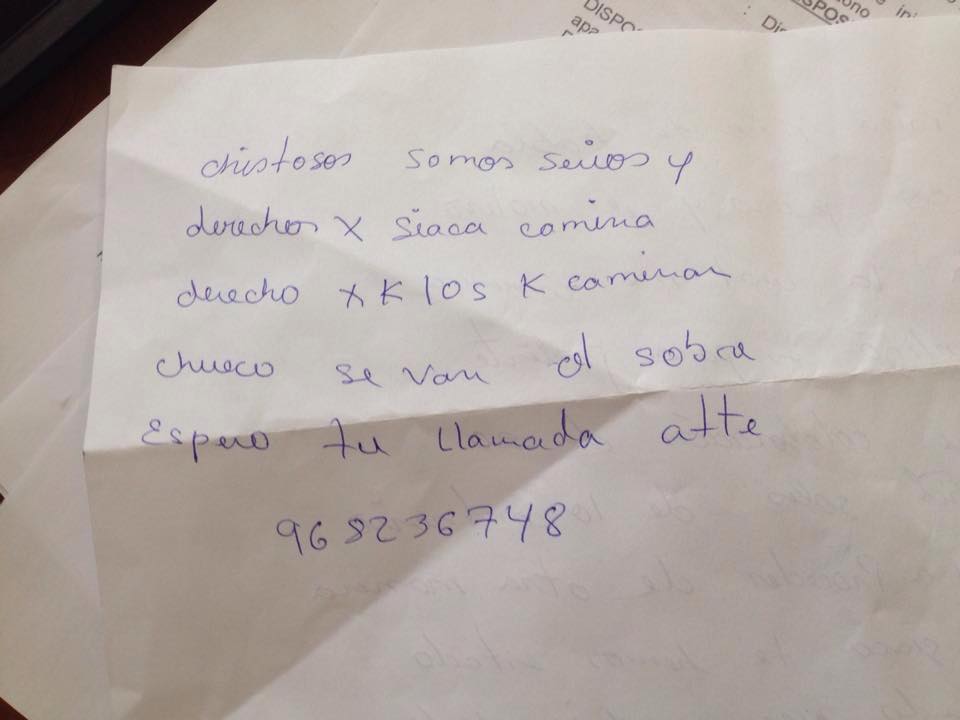 DISPO
apa
: Di
SPOS
ono
ini
chistosos somos serios y
derechos x siaca camina
derecho x K los K caminan
chueco se van al sobre
Espero tu llamada atte
968236748
de otra manera
te hemos citado